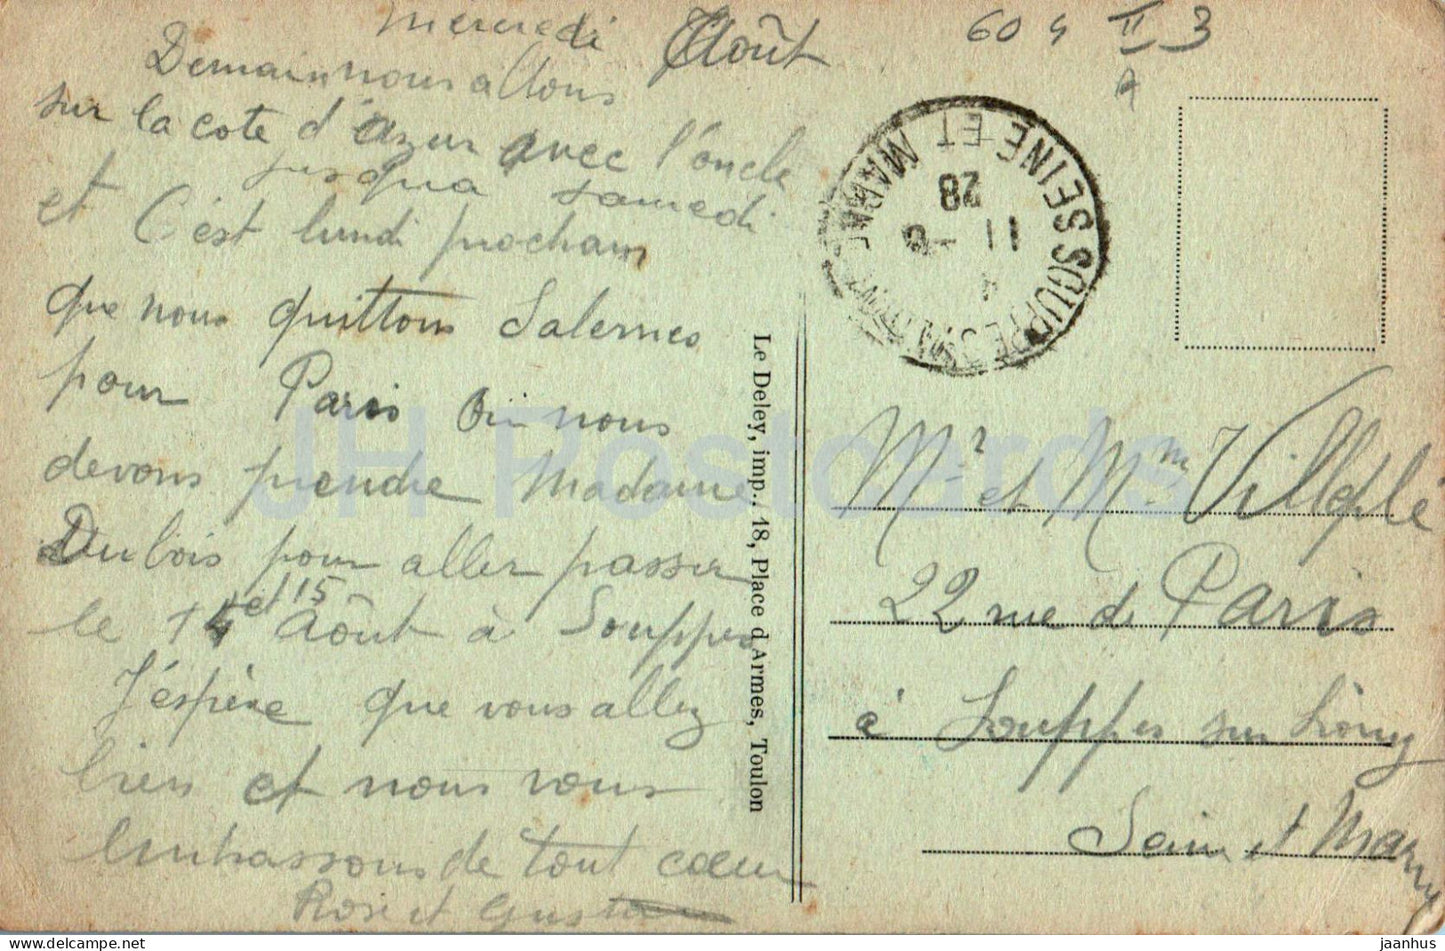 mercredi Août
Demain nous allons
sur la cote d'ázur avec l'oncle
jusqua samedi
et C'est lundi prochain
que nous quittons Salernes
pour Paris Ou nous
devons prendre Madame
Dubois pour aller passer
le 14 et 15 Aôut à Souppes
J'éspère que vous allez
bien et nous vous
embrassons de tout cœur
Rose et Gustave
Le Deley, imp., 18, Place d'Armes, Toulon
604 II 3
SOUPPES
SEINE ET MARNE
11 - 8
28
Mr et Mm Villeplé
22 rue de Paris
à Souppes sur Loing
Seine et Marne
JH Postcards
hippostcard.com
jaanhus